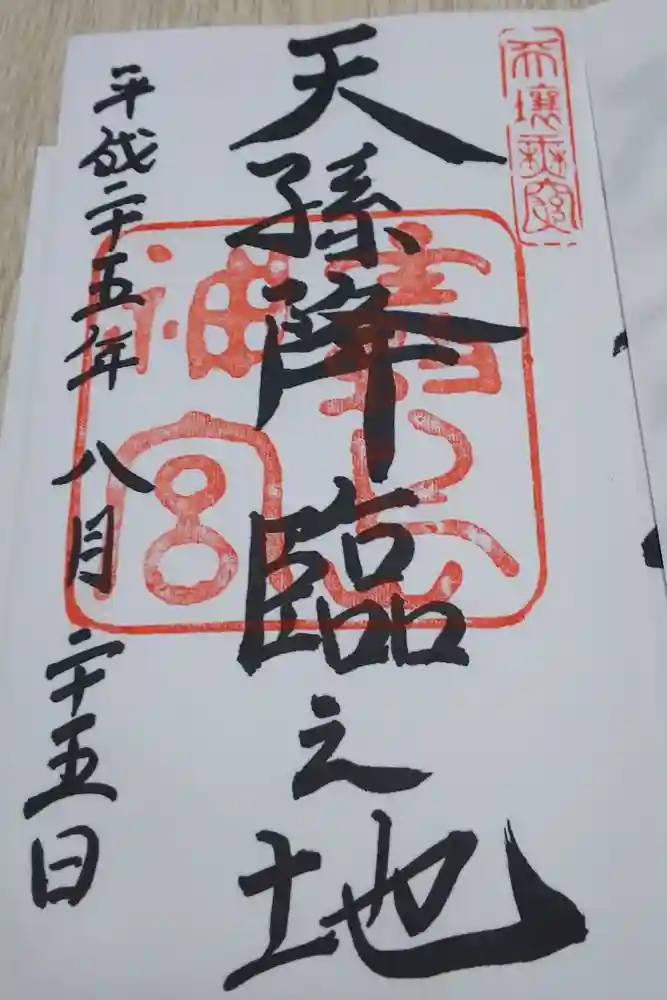 天壤無窮
天孫降臨之地
神宮
平成二十五年八月二十五日